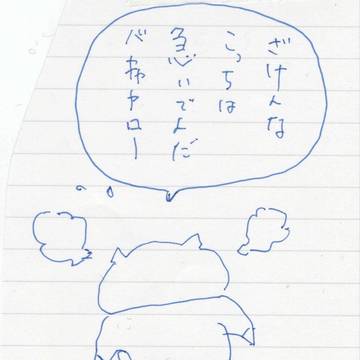 ざけんな
こっちは
急いでんだ
バカヤロー